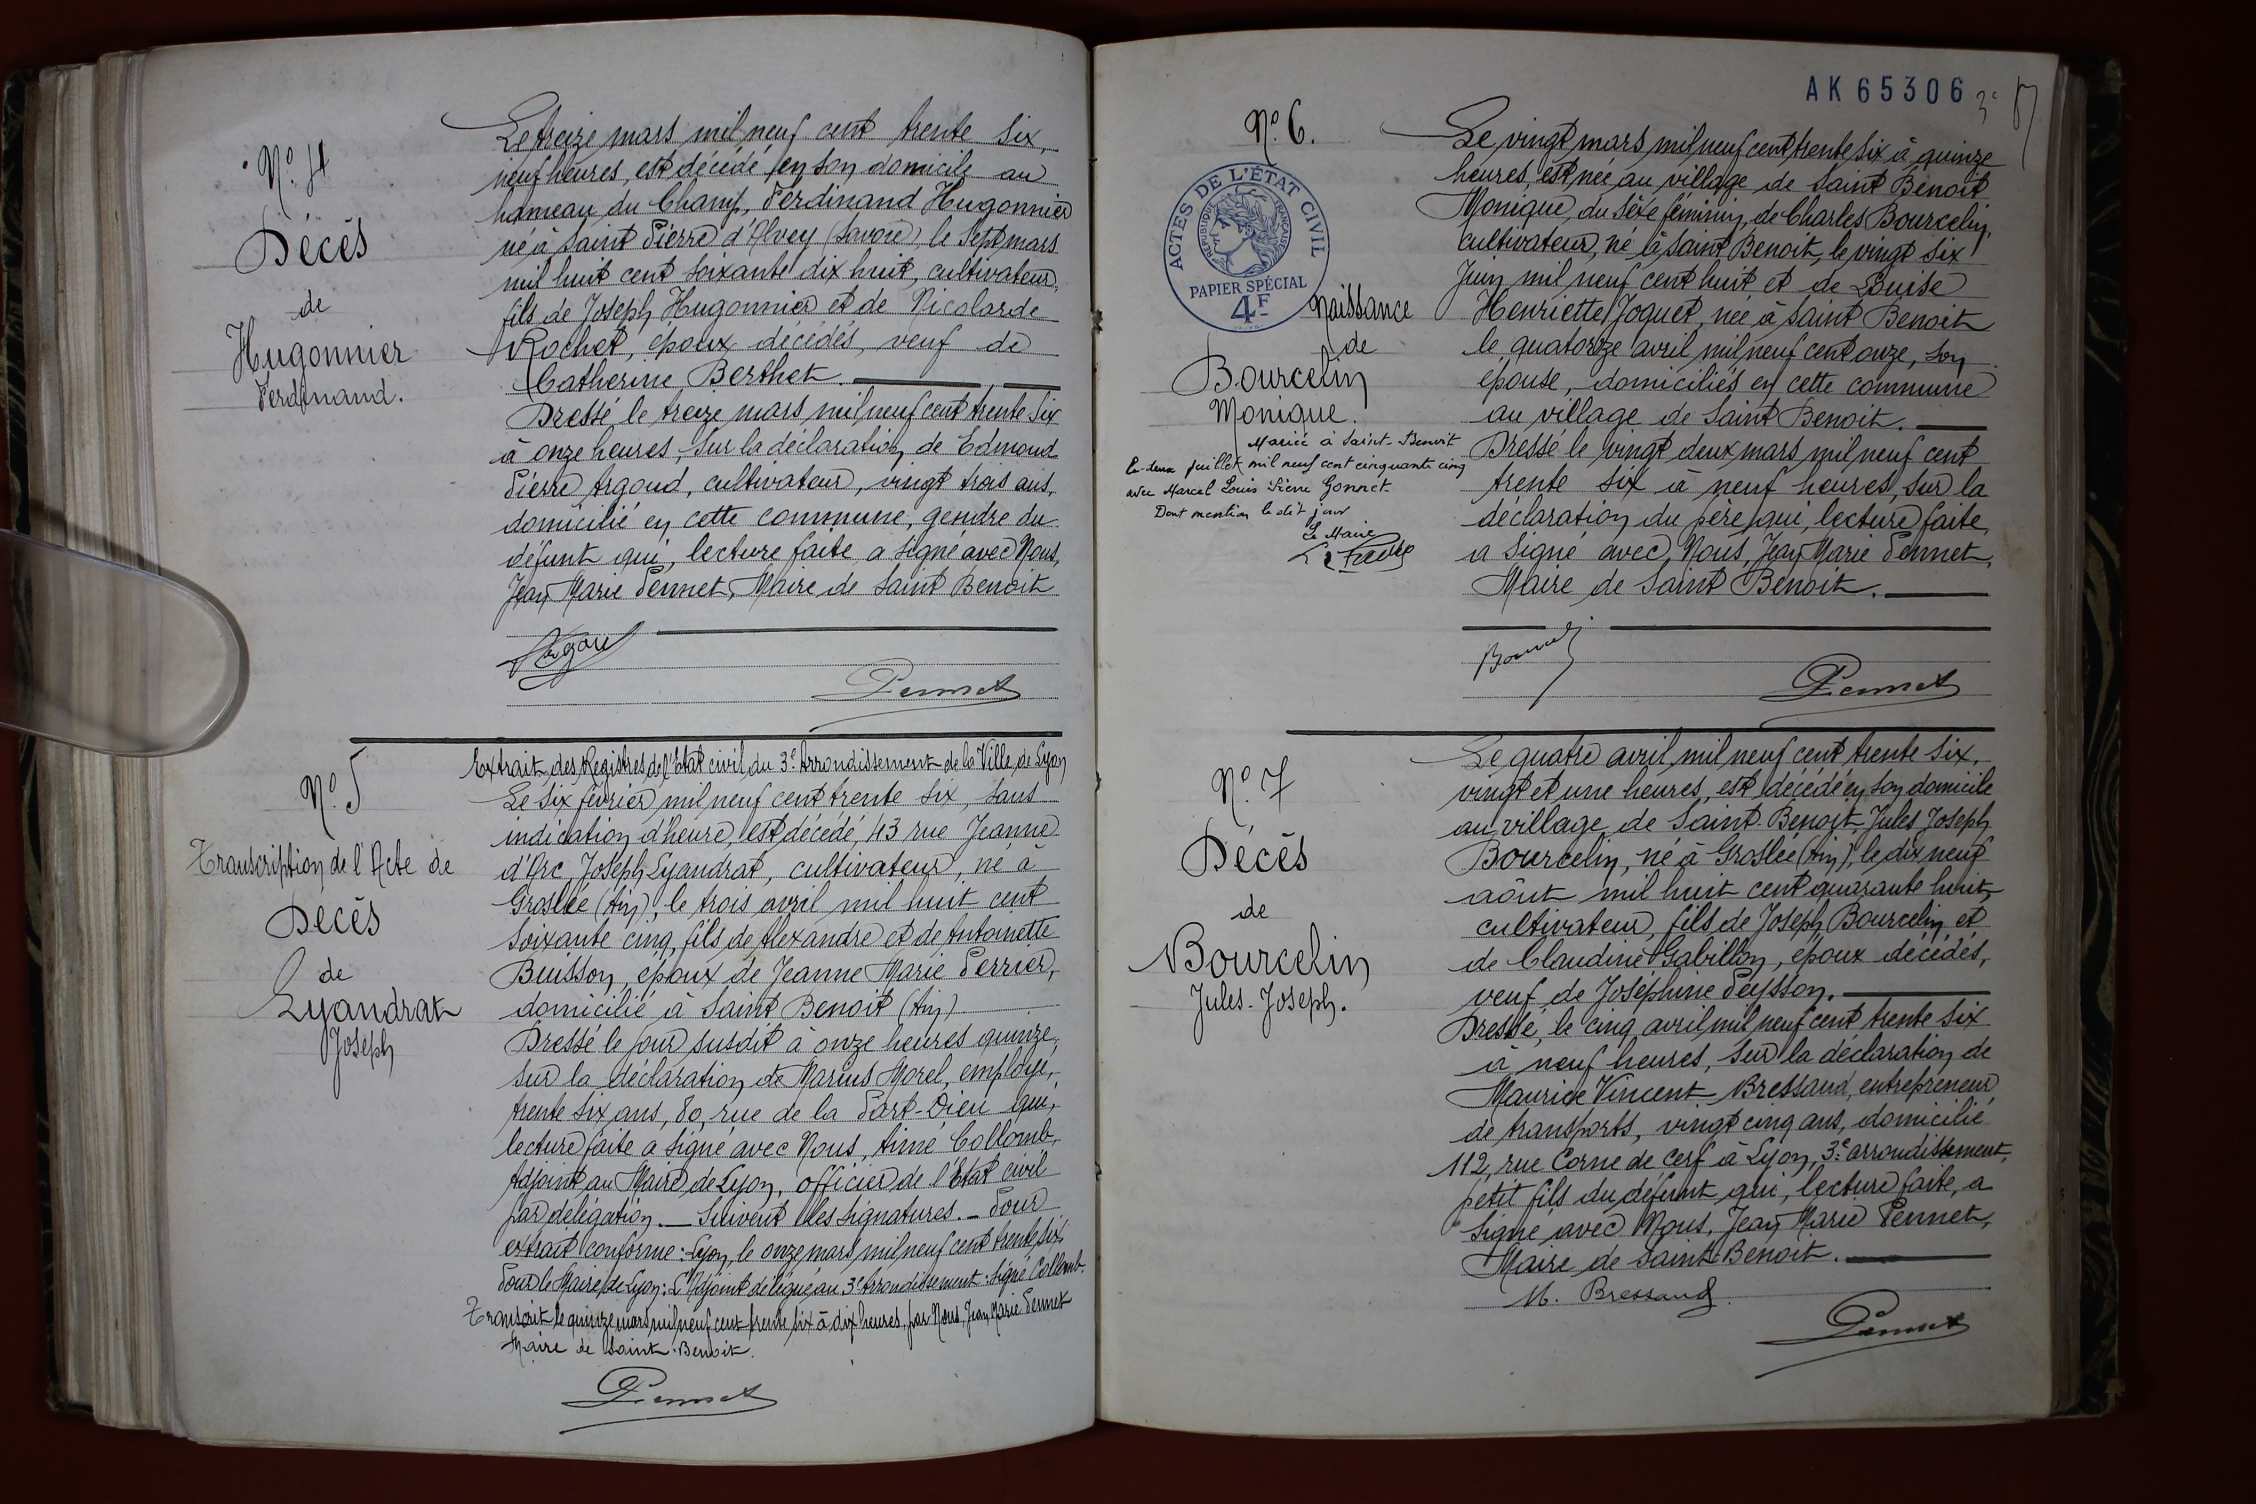 N°. 4
Décès
de
Hugonnier
Ferdinand.
Le treize mars mil neuf cent trente six,
neuf heures, est décédé en son domicile au
hameau du Champ, Ferdinand Hugonnier
né à Saint Pierre d'Alvey (Savoie), le sept mars
mil huit cent soixante dix huit, cultivateur,
fils de Joseph Hugonnier et de Nicolarde
Rochet, époux décédés, veuf de
Catherine Berthet.
Dressé le treize mars mil neuf cent trente six
à onze heures, sur la déclaration de Edmond
Pierre Argoud, cultivateur, vingt trois ans,
domicilié en cette commune, gendre du
défunt qui, lecture faite a signé avec Nous,
Jean Marie Pennet, Maire de Saint Benoit
Pennet
N°. 5
Transcription de l'Acte de
Décès
de
Lyandrat
Joseph
Extrait des Registres de l'Etat civil du 3e Arrondissement de la Ville de Lyon
Le six février mil neuf cent trente six, sans
indication d'heure, est décédé, 43 rue Jeanne
d'Arc, Joseph Lyandrat, cultivateur, né à
Groslée (Ain), le trois avril mil huit cent
soixante cinq, fils de Alexandre et de Antoinette
Buisson, époux de Jeanne Marie Perrier,
domicilié à Saint Benoit (Ain)
Dressé le jour susdit à onze heures quinze,
sur la déclaration de Marius Morel, employé,
trente six ans, 80, rue de la Part-Dieu qui,
lecture faite a signé avec Nous, Aimé Collomb,
Adjoint au Maire de Lyon, officier de l'Etat civil
par délégation. — Suivent les signatures. — Pour
extrait conforme : Lyon, le onze mars mil neuf cent trente six
Pour le Maire de Lyon : L'Adjoint délégué au 3e Arrondissement : signé Collomb.
Transcrit le quinze mars mil neuf cent trente six à dix heures, par Nous, Jean Marie Pennet
Maire de Saint-Benoit.
Pennet
AK 65306
3e
N°. 6.
ACTES DE L'ÉTAT CIVIL
RÉPUBLIQUE FRANÇAISE
PAPIER SPÉCIAL
4F
Naissance
de
Bourcelin
Monique.
Mariée à Saint-Benoit
le deux juillet mil neuf cent cinquante cinq
avec Marcel Louis Pierre Gonnet
Dont mention le dit jour
Le Maire
Le vingt mars mil neuf cent trente six à quinze
heures, est née au village de Saint Benoit
Monique, du sexe féminin, de Charles Bourcelin,
cultivateur, né à Saint Benoit, le vingt six
Juin mil neuf cent huit et de Louise
Henriette Joguet, née à Saint Benoit
le quatorze avril mil neuf cent onze, son
épouse, domiciliés en cette commune
au village de Saint Benoit.
Dressé le vingt deux mars mil neuf cent
trente six à neuf heures, sur la
déclaration du père qui, lecture faite,
a signé avec Nous, Jean Marie Pennet,
Maire de Saint Benoit.
Pennet
N°. 7
Décès
de
Bourcelin
Jules-Joseph.
Le quatre avril mil neuf cent trente six,
vingt et une heures, est décédé en son domicile
au village de Saint-Benoit, Jules Joseph
Bourcelin, né à Groslée (Ain), le dix neuf
août mil huit cent quarante huit,
cultivateur, fils de Joseph Bourcelin et
de Claudine Gabillon, époux décédés,
veuf de Joséphine Peysson.
Dressé, le cinq avril mil neuf cent trente six
à neuf heures, sur la déclaration de
Maurice Vincent Bressand, entrepreneur
de transports, vingt cinq ans, domicilié
112, rue Corne de Cerf à Lyon, 3e arrondissement,
petit fils du défunt qui, lecture faite, a
signé avec Nous, Jean Marie Pennet,
Maire de Saint Benoit.
M. Bressand
Pennet